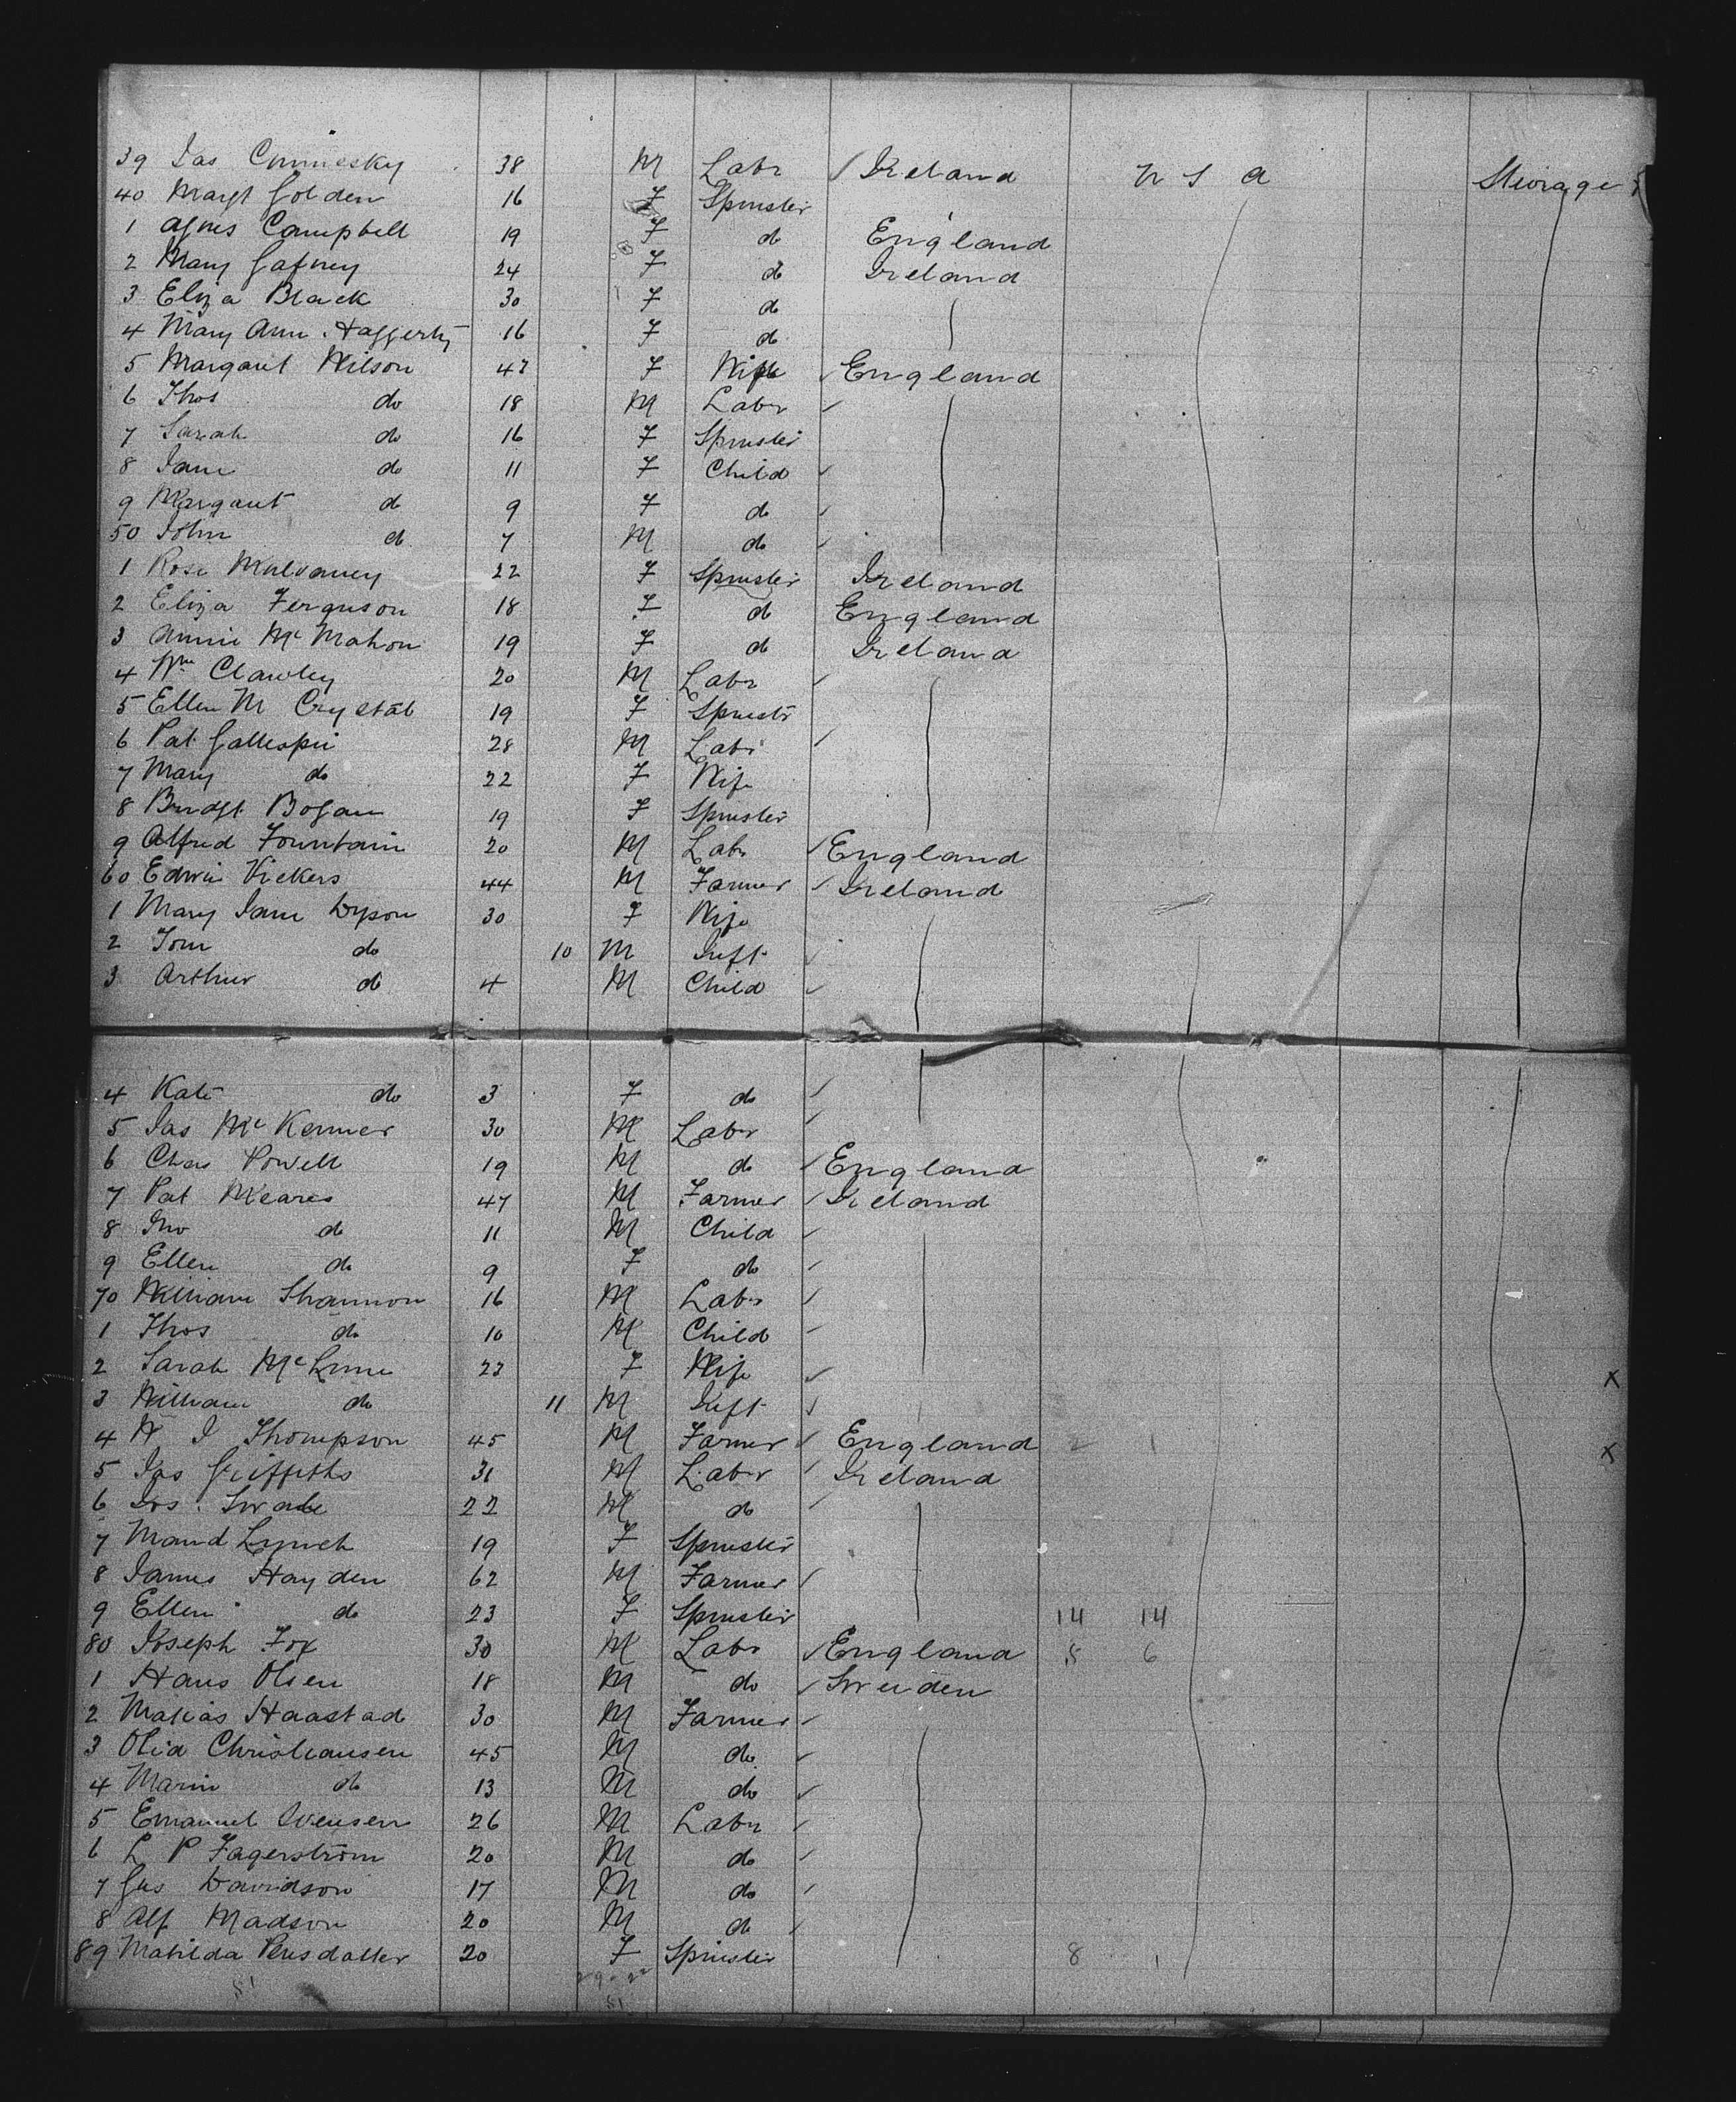 39 Jas Commesky 38 M Labr Ireland U S A Steirage
40 Margt Golden 16 F Spinster
1 Agnes Campbell 19 F do England
2 Mary Gafney 24 F do Ireland
3 Eliza Black 30 F do
4 Mary Ann Haggerty 16 F do
5 Margaret Wilson 47 F Wife England
6 Thos do 18 M Labr
7 Sarah do 16 F Spinster
8 Jane do 11 F Child
9 Margaret do 9 F do
50 John do 7 M do
1 Rose Mulvaney 22 F Spinster Ireland
2 Eliza Ferguson 18 F do England
3 Annie Mc Mahon 19 F do Ireland
4 Wm Clawley 20 M Labr
5 Ellen M Crystal 19 F Spinstr
6 Pat Gallespie 28 M Labr
7 Mary do 22 F Wife
8 Bridgt Bogan 19 F Spinster
9 Alfred Fountain 20 M Labr England
60 Edwin Vickers 44 M Farmer Ireland
1 Mary Jane Dyson 30 F Wife
2 Tom do 10 M Inft
3 Arthur do 4 M Child
4 Kate do 3 F do
5 Jas Mc Kenner 30 M Labr
6 Chas Powell 19 M do England
7 Pat Meares 47 M Farmer Ireland
8 Jno do 11 M Child
9 Ellen do 9 F do
70 William Shannon 16 M Labr
1 Thos do 10 M Child
2 Sarah Mc 23 F Wife X
3 William do 11 M Inft
4 W J Thompson 45 M Farmer England 2 1 X
5 Jas Griffiths 31 M Labr Ireland
6 Jos. Swale 22 M do
7 Maud Lynch 19 F Spinster
8 James Hayden 62 M Farmer
9 Ellen do 23 F Spinster 14 14
80 Joseph Fox 30 M Labr England 8 6
1 Hans Olsen 18 M do Sweden
2 Matias Haastad 30 M Farmer
3 Olia Christiansen 45 M do
4 Marin do 13 M do
5 Emanuel Svensen 26 M Labr
6 L P Fagerstrom 20 M do
7 Gus Davidson 17 M do
8 Alf Madson 20 M do
89 Matilda Persdatter 20 F Spinster 8 1
51 29 22
51